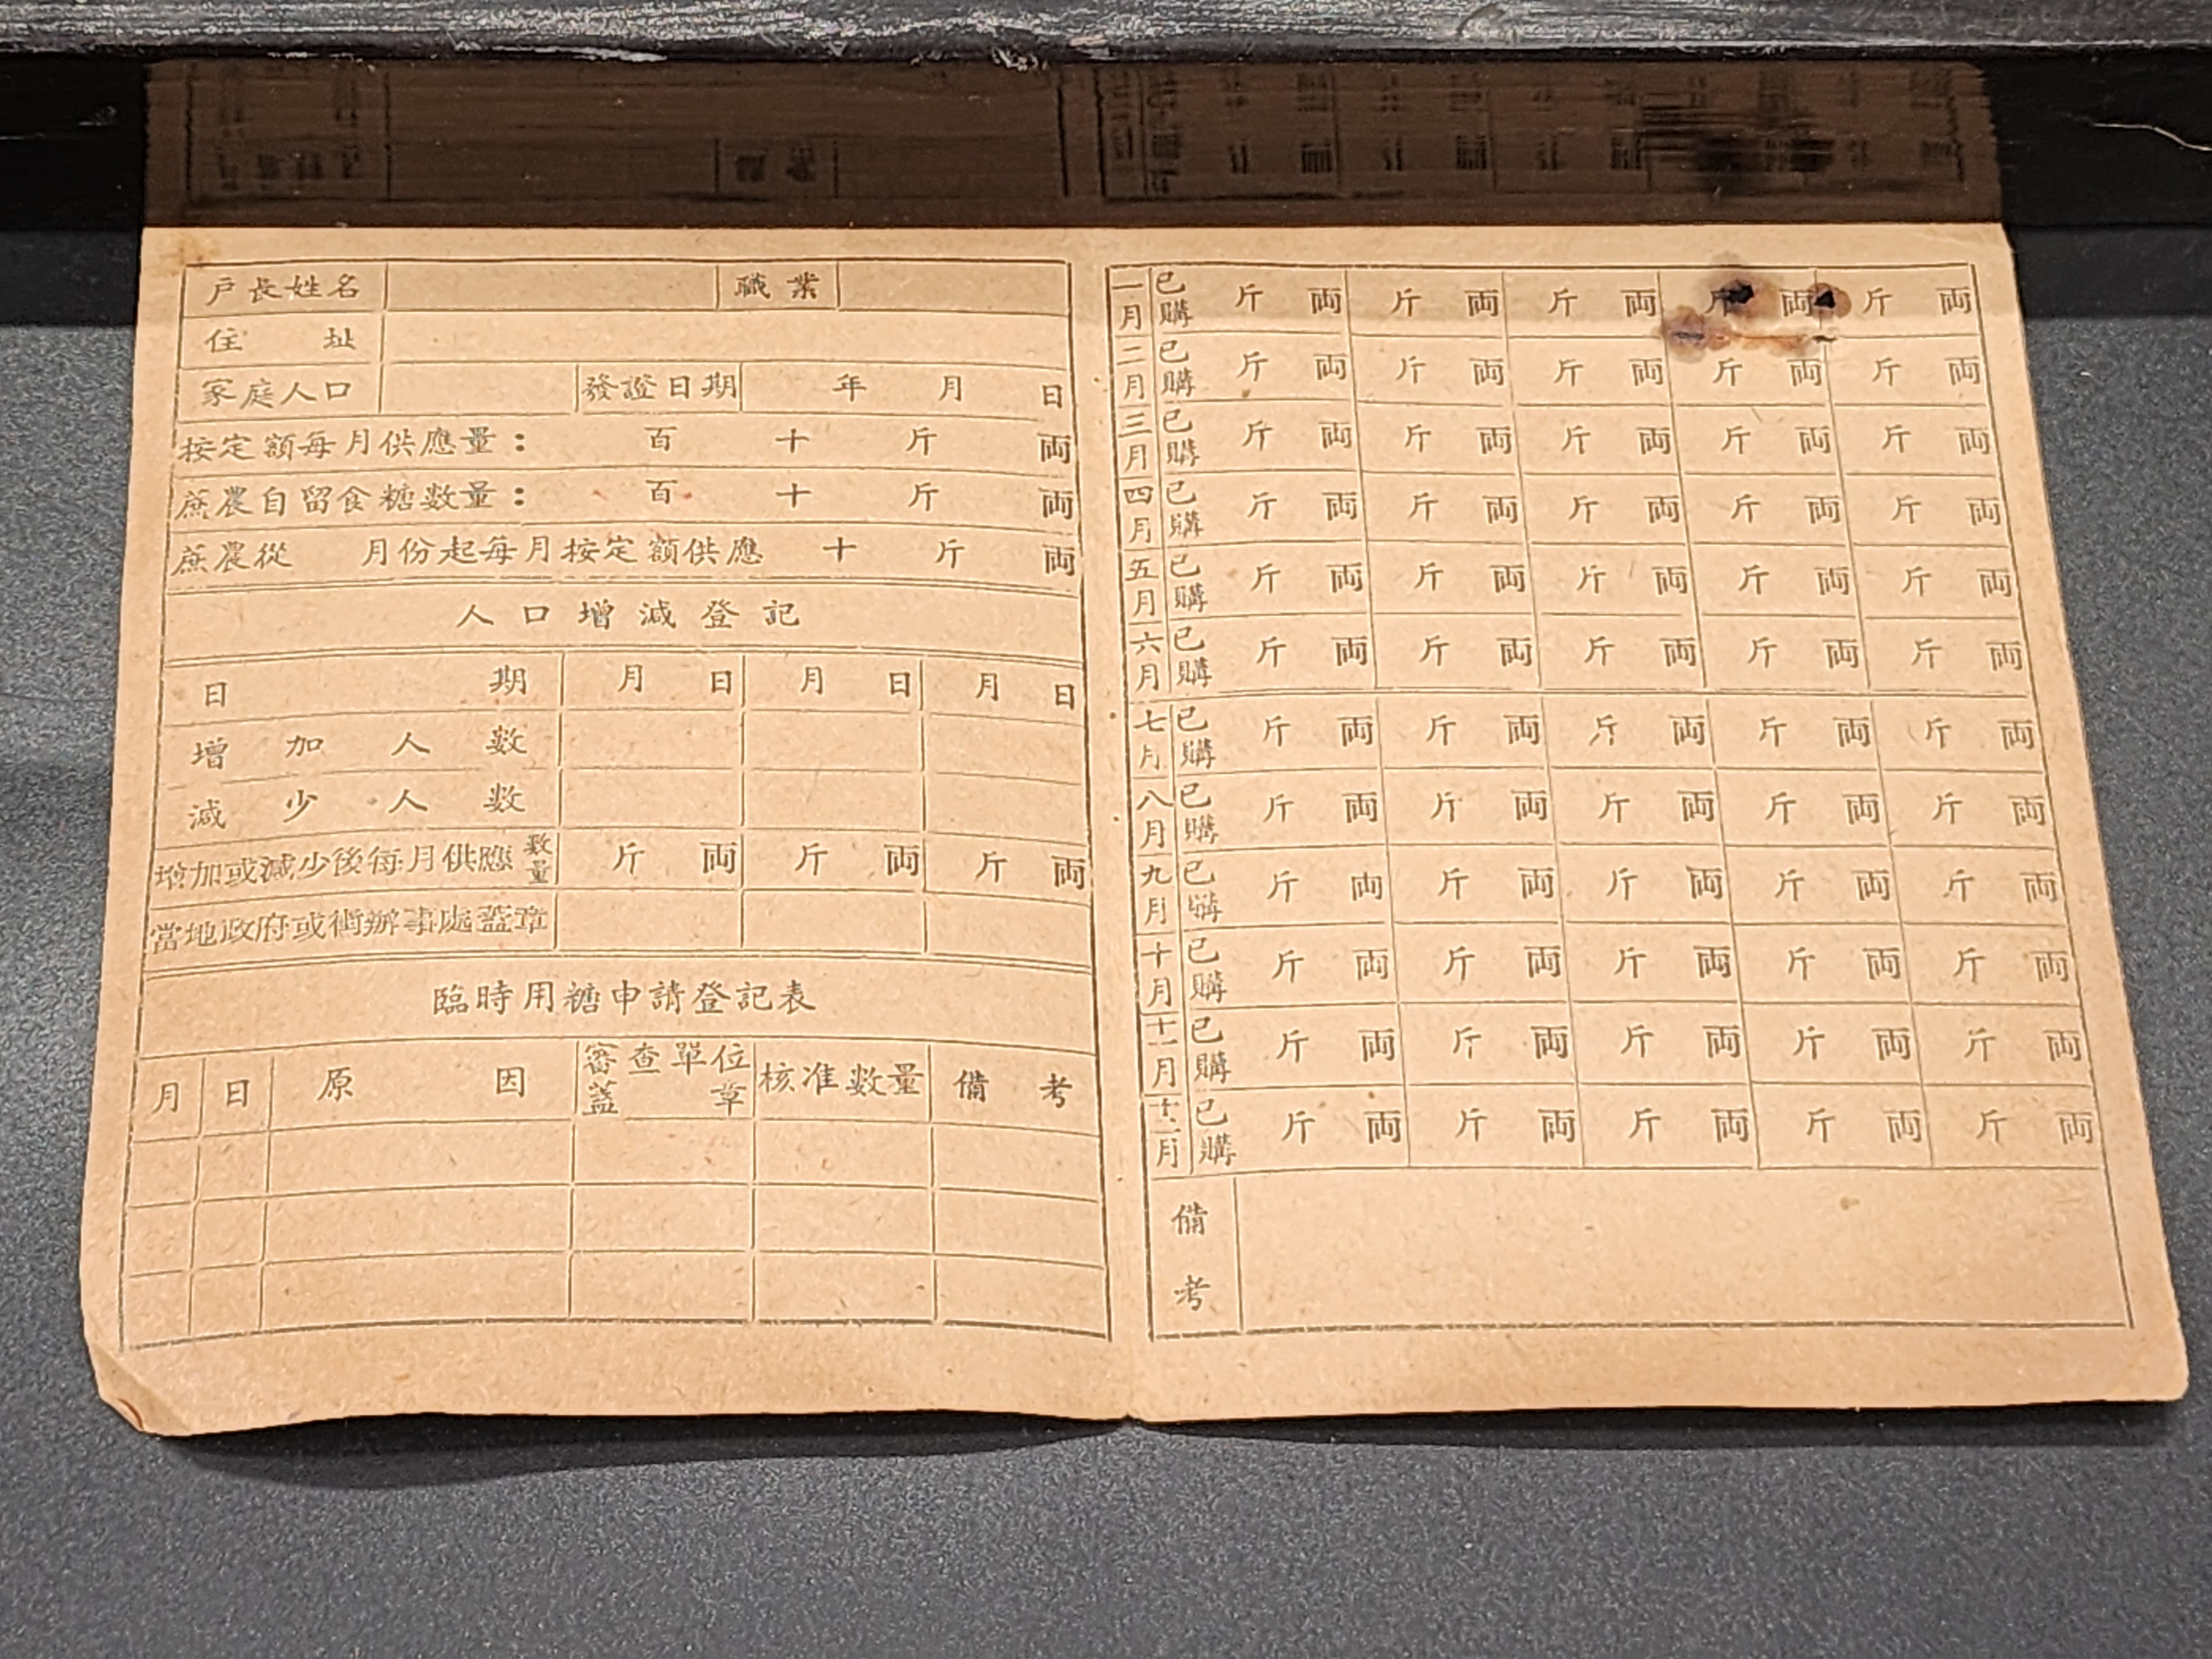 戶長姓名 職業
住址
家庭人口 發證日期 年 月 日
按定額每月供應量： 百 十 斤 両
蔗農自留食糖数量： 百 十 斤 両
蔗農從 月份起每月按定額供應 十 斤 両
人口增減登記
日期 月 日 月 日 月 日
增加人数
減少人数
增加或減少後每月供應数量 斤 両 斤 両 斤 両
當地政府或街辦事處蓋章
臨時用糖申請登記表
月 日 原因 審查單位蓋章 核准数量 備考
一月 已購 斤 両 斤 両 斤 両 斤 両 斤 両
二月 已購 斤 両 斤 両 斤 両 斤 両 斤 両
三月 已購 斤 両 斤 両 斤 両 斤 両 斤 両
四月 已購 斤 両 斤 両 斤 両 斤 両 斤 両
五月 已購 斤 両 斤 両 斤 両 斤 両 斤 両
六月 已購 斤 両 斤 両 斤 両 斤 両 斤 両
七月 已購 斤 両 斤 両 斤 両 斤 両 斤 両
八月 已購 斤 両 斤 両 斤 両 斤 両 斤 両
九月 已購 斤 両 斤 両 斤 両 斤 両 斤 両
十月 已購 斤 両 斤 両 斤 両 斤 両 斤 両
十一月 已購 斤 両 斤 両 斤 両 斤 両 斤 両
十二月 已購 斤 両 斤 両 斤 両 斤 両 斤 両
備考